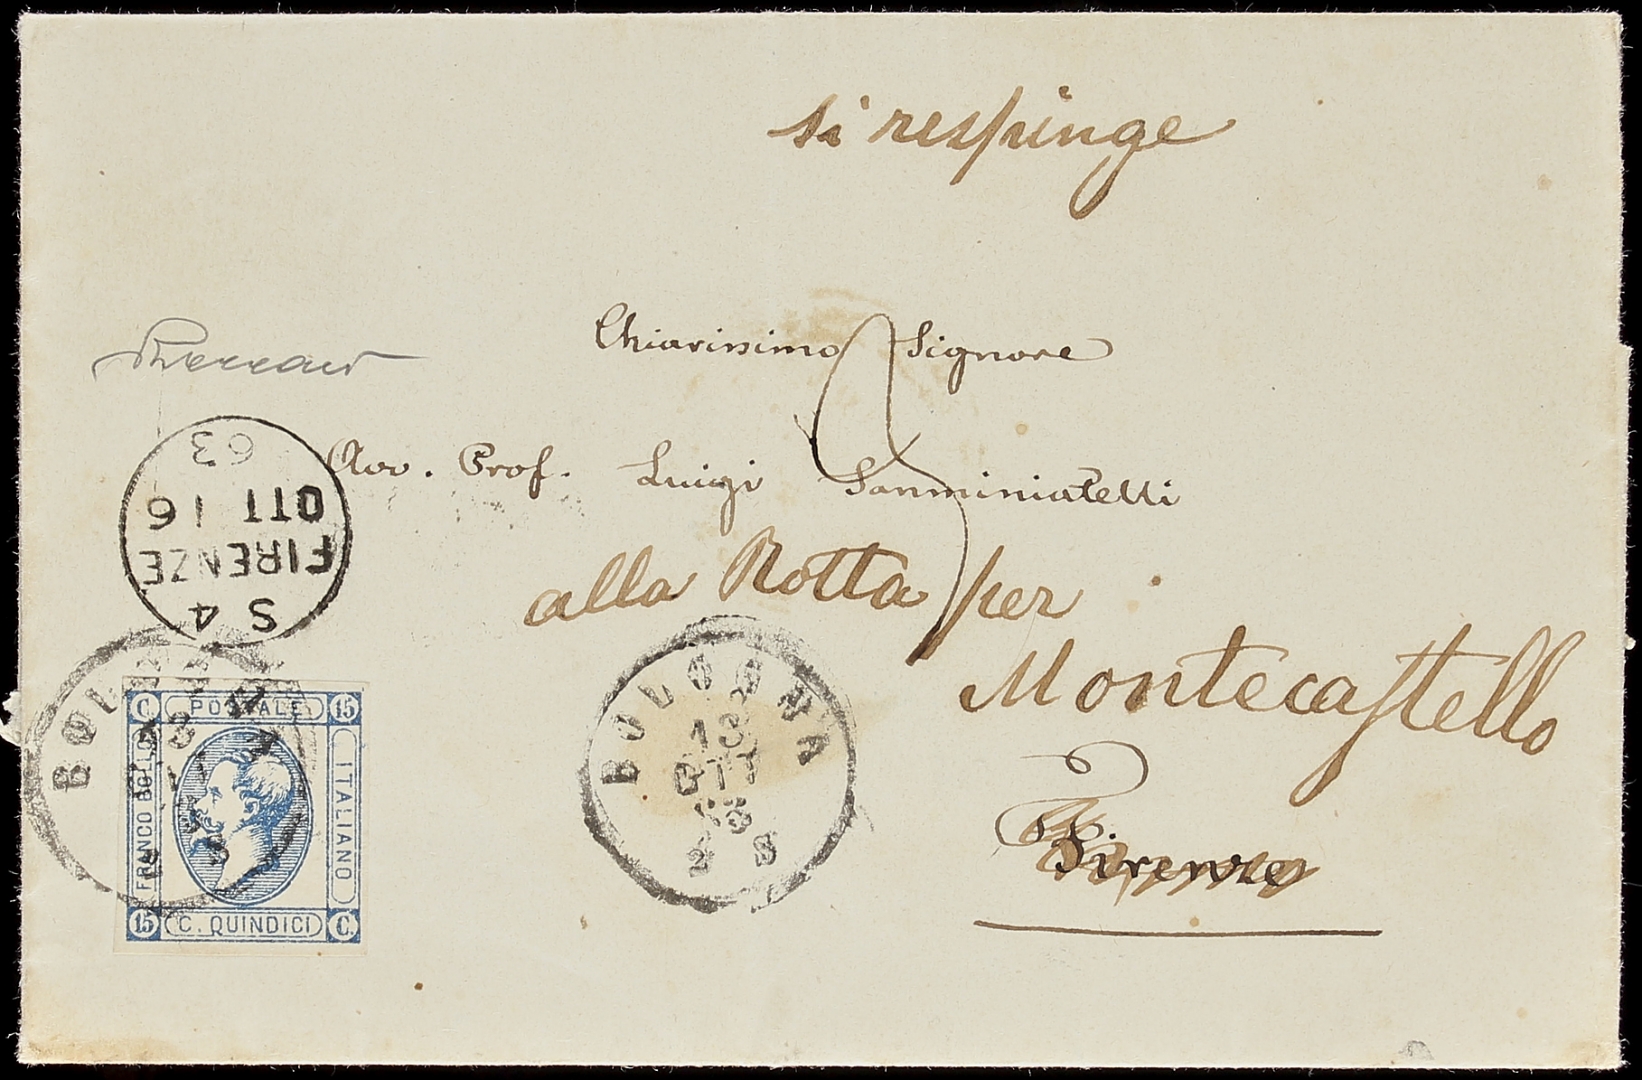 si respinge
Chiarissimo Signore
Avv. Prof. Luigi Sanminiatelli
alla Rotta per
Montecastello
Firenze
S 4
FIRENZE
OTT 16
63
BOLOGNA
13
OTT
63
2 S
BOL
C. POSTALE 15
FRANCO BOLLO
ITALIANO
15 C. QUINDICI C.